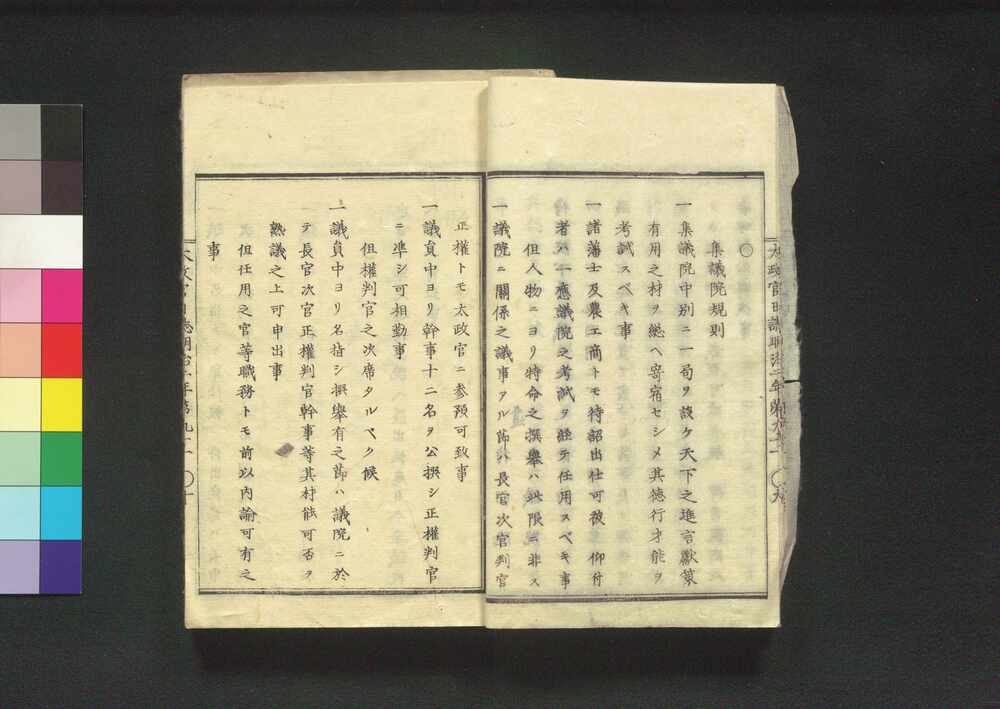 〇
集議院規則
一集議院中別ニ一局ヲ設ケ天下之進言獻策
有用之材ヲ總ヘ寄宿セシメ其徳行才能ヲ
考試スベキ事
一諸藩士及農工商トモ待詔出仕可被　仰付
者ハ一應議院之考試ヲ經テ任用スベキ事
但人物ニヨリ特命之撰擧ハ此限ニ非ス
一議院ニ關係之議事アル節ハ長官次官判官
正權トモ太政官ニ参預可致事
一議員中ヨリ幹事十二名ヲ公撰シ正權判官
ニ準シ可相勤事
但權判官之次席タルベク候
一議員中ヨリ名指シ撰擧有之節ハ議院ニ於
テ長官次官正權判官幹事等其材能可否ヲ
熟議之上可申出事
但任用之官等職務トモ前以内諭可有之
事